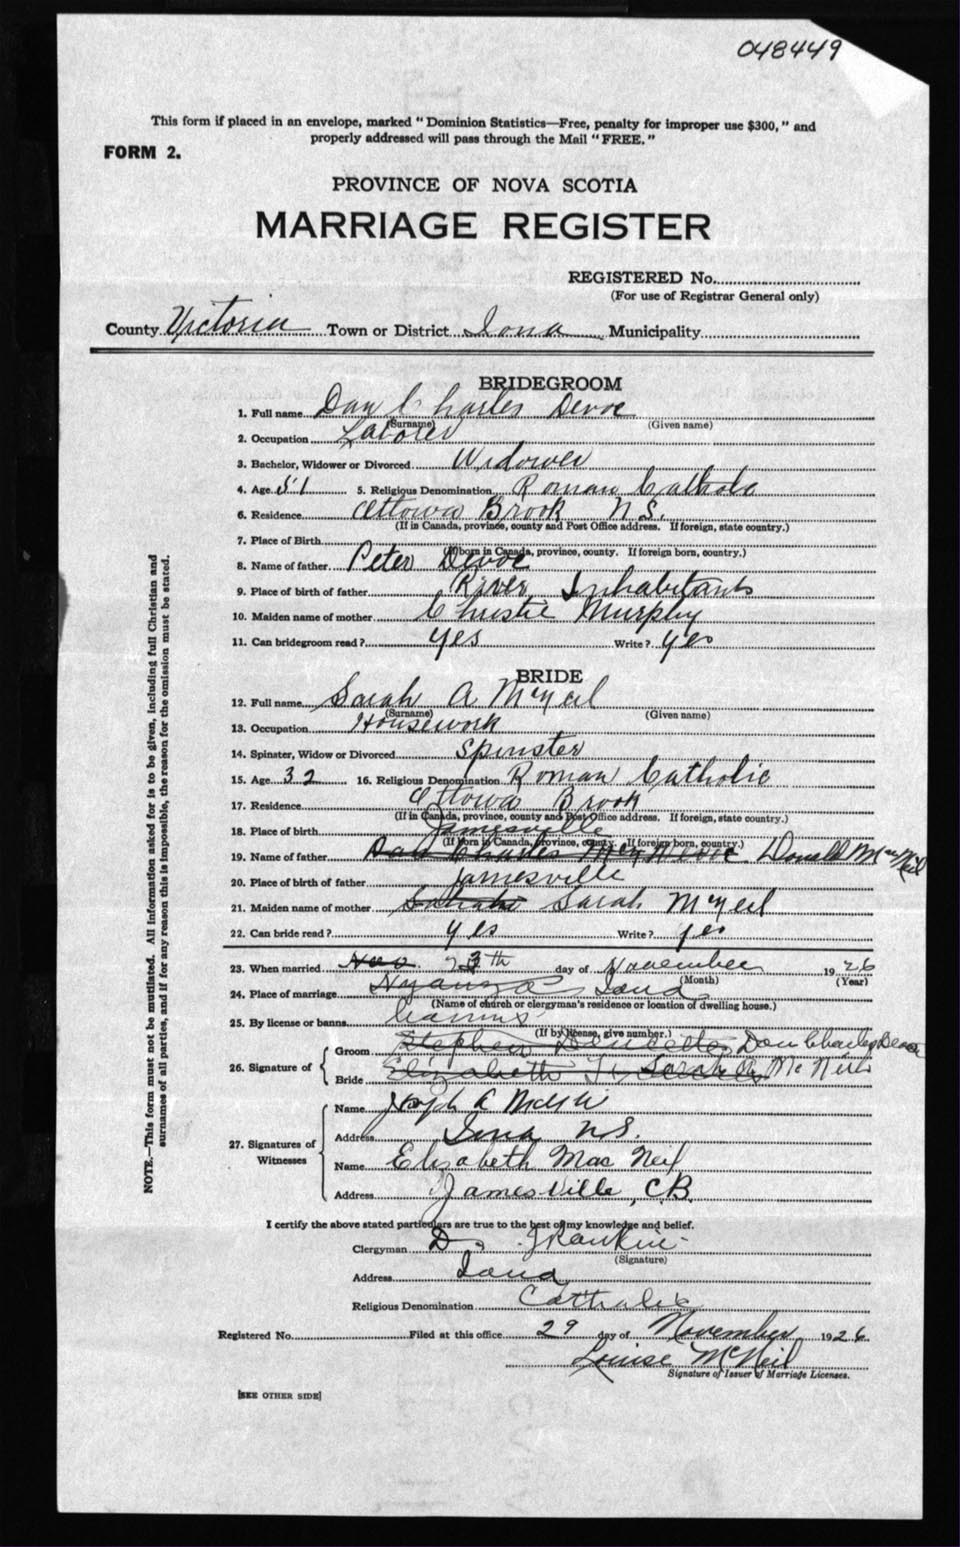 048449
This form if placed in an envelope, marked "Dominion Statistics—Free, penalty for improper use $300," and
properly addressed will pass through the Mail "FREE."
FORM 2.
PROVINCE OF NOVA SCOTIA
MARRIAGE REGISTER
REGISTERED No.
(For use of Registrar General only)
County Victoria Town or District Iona Municipality
BRIDEGROOM
1. Full name Dan Charles Devoe
(Surname) (Given name)
2. Occupation Laborer
3. Bachelor, Widower or Divorced Widower
4. Age 51 5. Religious Denomination Roman Catholic
6. Residence Ottowa Brook N.S.
(If in Canada, province, county and Post Office address. If foreign, state country.)
7. Place of Birth
(If born in Canada, province, county. If foreign born, country.)
8. Name of father Peter Devoe
9. Place of birth of father River Inhabitants
10. Maiden name of mother Christie Murphy
11. Can bridegroom read? yes Write? yes
BRIDE
12. Full name Sarah A McNeil
(Surname) (Given name)
13. Occupation Housework
14. Spinster, Widow or Divorced Spinster
15. Age 32 16. Religious Denomination Roman Catholic
17. Residence Ottowa Brook
(If in Canada, province, county and Post Office address. If foreign, state country.)
18. Place of birth Jamesville
(If born in Canada, province, county. If foreign born, country.)
19. Name of father Dan Charles Devoe Donald MacNeil
20. Place of birth of father Jamesville
21. Maiden name of mother Sarah McNeil
22. Can bride read? yes Write? yes
23. When married Nov 23th day of November 1926
(Month) (Year)
24. Place of marriage Nyanza Iona
(Name of church or clergyman's residence or location of dwelling house.)
25. By license or banns
(If by license, give number.)
26. Signature of
Groom Stephen Dan Charles Devoe
Bride Elizabeth Sarah A McNeil
27. Signatures of
Witnesses
Name Joseph A
Address Iona N.S.
Name Elizabeth Mac Neil
Address Jamesville, C.B.
I certify the above stated particulars are true to the best of my knowledge and belief.
Clergyman D. J Rankin
(Signature)
Address Iona
Religious Denomination Catholic
Registered No. Filed at this office 29 day of November 1926
Louise McNeil
Signature of Issuer of Marriage Licenses.
[SEE OTHER SIDE]
NOTE.—This form must not be mutilated. All information asked for is to be given, including full Christian and
surnames of all parties, and if for any reason this is impossible, the reason for the omission must be stated.